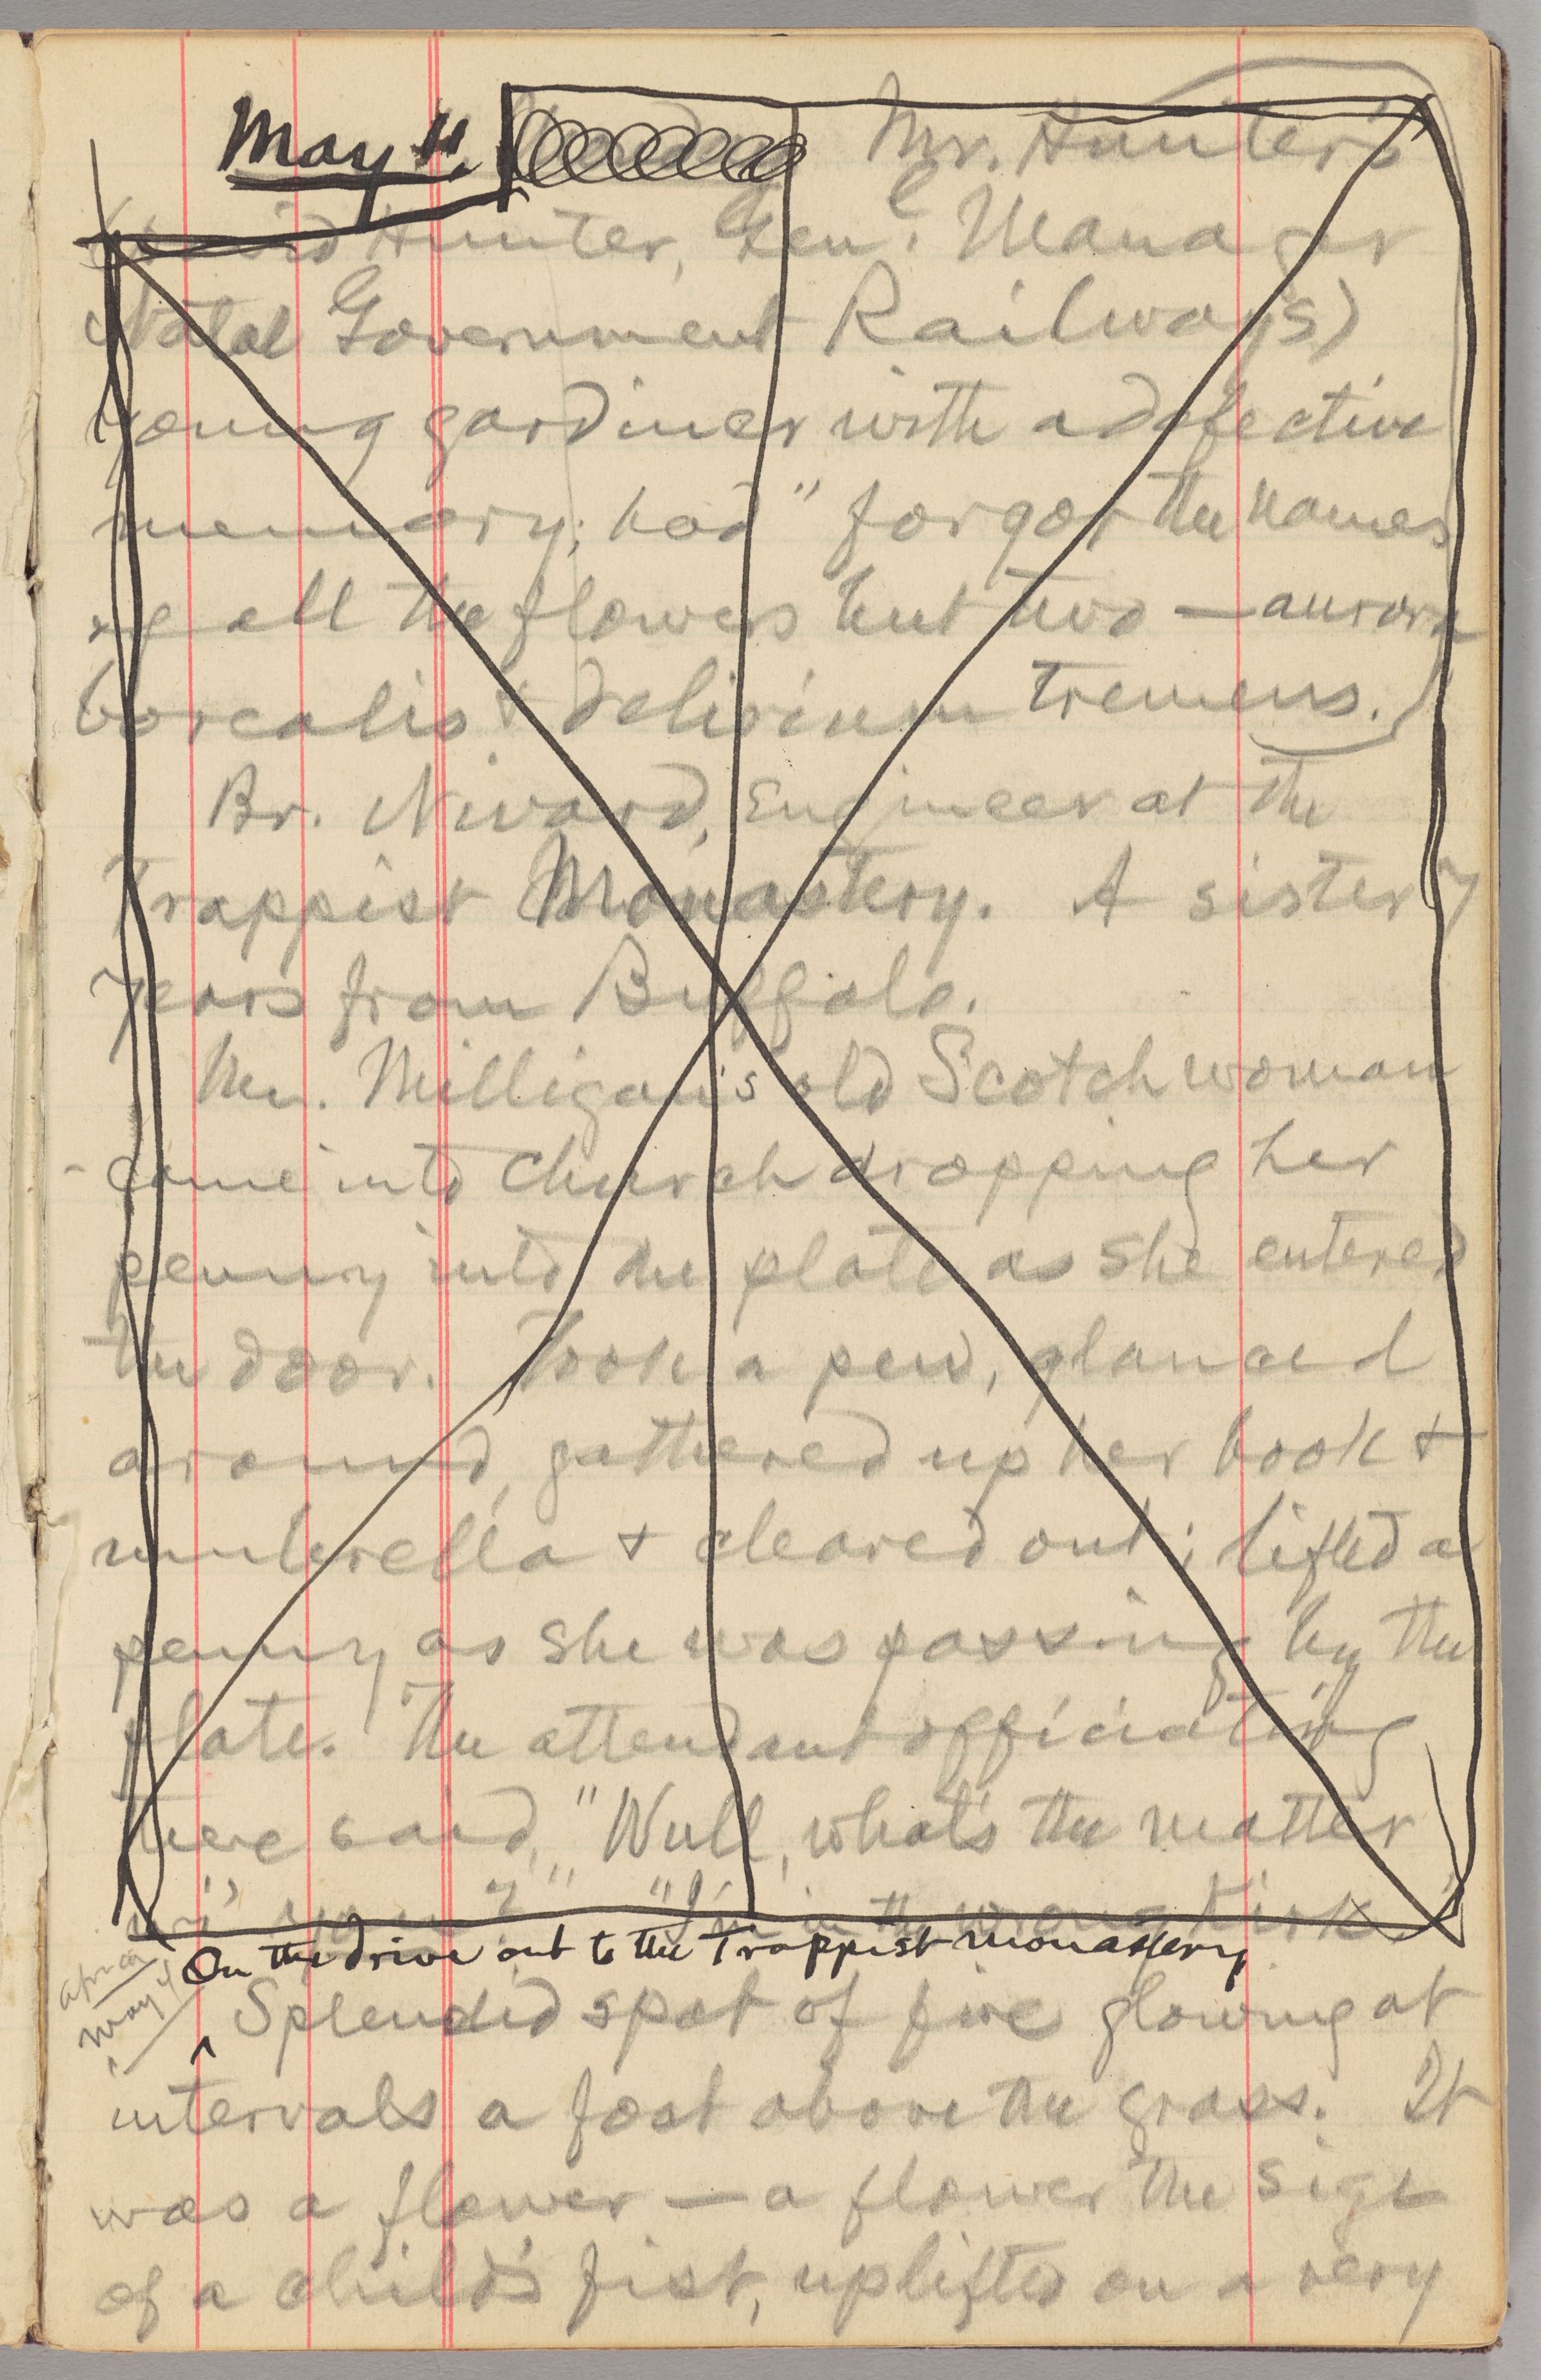 May 11. Mr. Hunter's
(David Hunter, Gen'l Manager
Natal Government Railways)
young gardiner with a defective
memory; had "forgot the names
of all the flowers but two — aurora
borealis & delirium tremens.
Br. Nivard, Engineer at the
Trappist Monastery. A sister 7
years from Buffalo.
Mr. Milligan's old Scotch woman
came into church dropping her
penny into the plate as she entered
the door. Took a pew, glanced
around, gathered up her book &
umbrella & cleared out; lifted a
penny as she was passing by the
plate. The attendant officiating
there said, "Wull, what's the matter
wi' ?" "I'm in the wrong kirk."
On the drive out to the Trappist monastery
Africa
May 11
Splendid spot of fire glowing at
intervals a foot above the grass. It
was a flower — a flower the size
of a child's fist, uplifted on a very